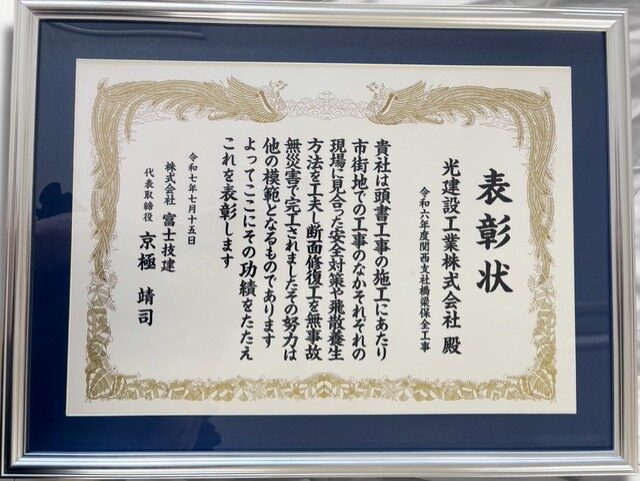 表彰状
光建設工業株式会社 殿
令和六年度関西支社橋梁保全工事
貴社は頭書工事の施工にあたり
市街地での工事のなかそれぞれの
現場に見合った安全対策や飛散養生
方法を工夫し断面修復工を無事故
無災害で完工されましたその努力は
他の模範となるものであります
よってここにその功績をたたえ
これを表彰します
令和七年七月十五日
株式会社 富士技建
代表取締役 京極 靖司